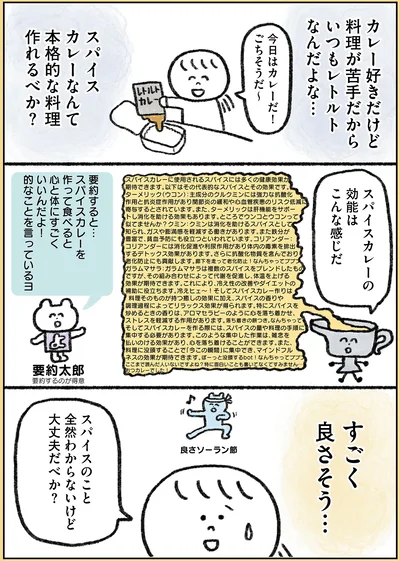 カレー好きだけど
料理が苦手だから
いつもレトルト
なんだよな…
今日はカレーだ！
ごちそうだ～
レトルト
カレー
スパイス
カレーなんて
本格的な料理
作れるべか？
スパイスカレーの
効能は
こんな感じだ
スパイスカレーに使用されるスパイスには多くの健康効果が
期待できます。以下はその代表的なスパイスとその効果です。
ターメリック(ウコン)：主成分のクルクミンには強力な抗酸化
作用と抗炎症作用があり関節炎の緩和や心血管疾患のリスク低減に
寄与すると言われています。また、ターメリックは肝機能をサポー
トし消化を助ける効果もあります。ところでウンコとウコンって
似てませんか？クミン：クミンは消化を助けるスパイスとして
知られ、ガスや膨満感を軽減する働きがあります。また鉄分が
豊富で、貧血予防にも役立つといわれています。コリアンダー：
コリアンダーには消化促進や利尿作用があり体内の毒素を排出
するデトックス効果があります。さらに抗酸化物質を含んでおり
老化防止にも貢献します。廊下を走って老化防止！なんちゃってププ
ガラムマサラ：ガラムマサラは複数のスパイスをブレンドしたもの
ですが、その組み合わせによって代謝を促進し、体温を上げる
効果が期待できます。これにより、冷え性の改善やダイエットの
補助に役立ちます。冷えヒェ～！そしてスパイスカレー作りは
料理そのものが持つ癒しの効果に加え、スパイスの香りや
調理過程によってリラックス効果が得られます。特にスパイスを
炒めるときの香りは、アロマセラピーのように心を落ち着かせ、
ストレスを軽減する作用があります。落ち着きの餅つき。なんちゃって
そしてスパイスカレーを作る際には、スパイスの量や料理の手順に
集中する必要があります。このような集中した作業は、雑念を
払いのける効果があり、心を落ち着けることができます。また、
料理に没頭することで「今この瞬間」に集中でき、マインドフル
ネスの効果が期待できます。ぼーっと没頭するbot！なんちゃってププ
ここまで読んだ人いないですよね？特に面白いことも書いてなくてすみません
要約すると…
スパイスカレーを
作って食べると
心と体にすごく
いいんだよー
的なことを言っているヨ
よ
要約太郎
要約するのが得意
すごく
良さそう…
良さソーラン節
スパイスのこと
全然わからないけど
大丈夫だべか？